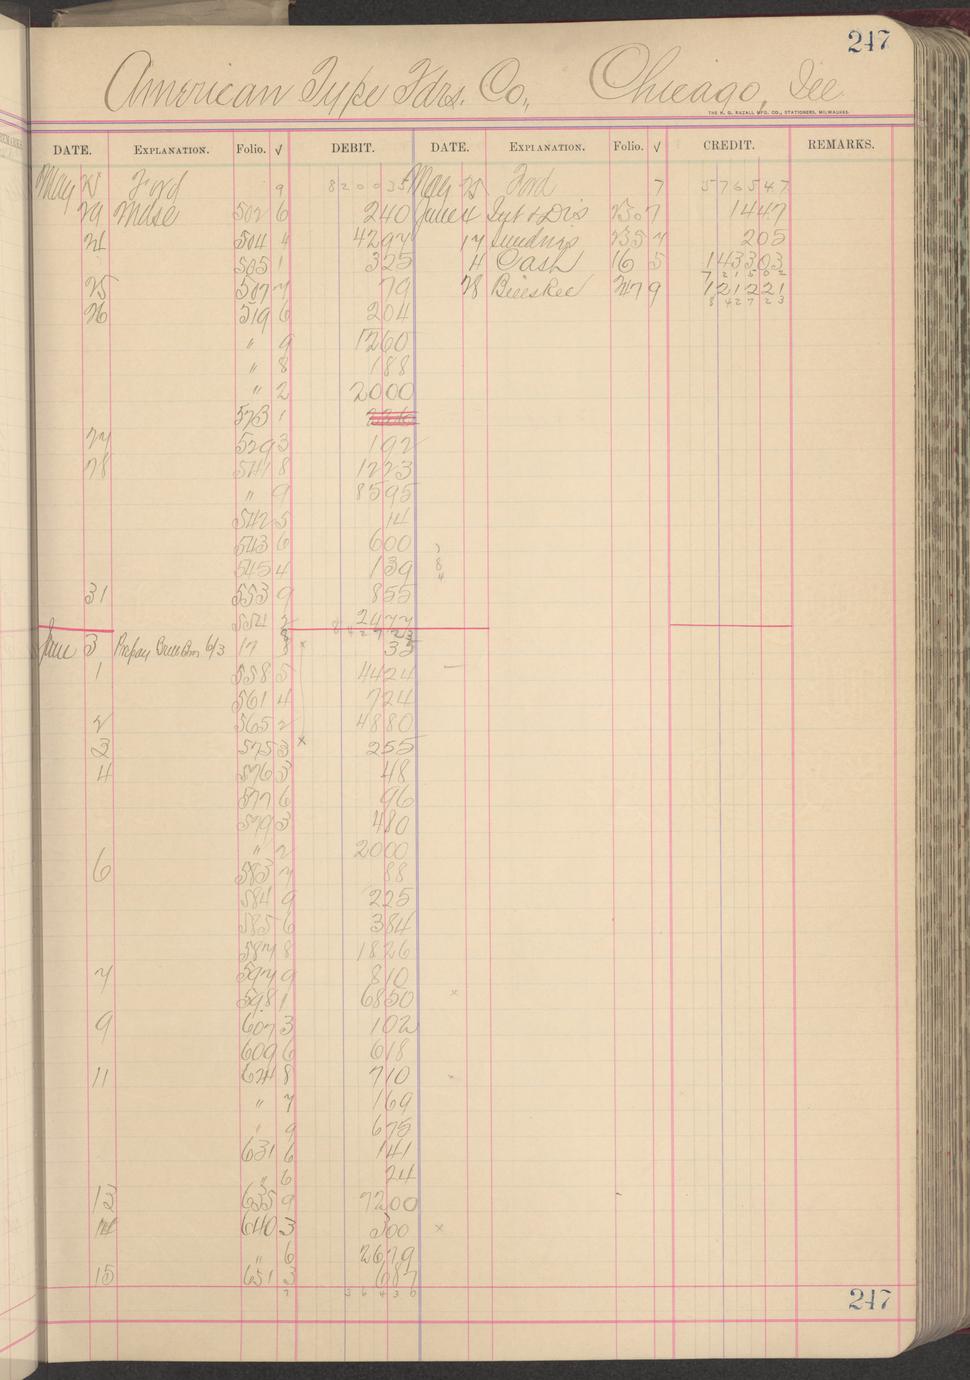 247
American Type Fdrs. Co., Chicago, Ill
THE H. G. RAZALL MFG. CO., STATIONERS, MILWAUKEE.
DATE. EXPLANATION. Folio. √ DEBIT. DATE. EXPLANATION. Folio. √ CREDIT. REMARKS.
May 25 Ford 9 820035 May 25 Ford 7 576547
29 Mdse 502 6 240 June 4 Int & Dis 230 7 1447
24 504 4 4297 17 Sundries 235 7 205
505 1 325 4 Cash 16 5 143303
721502
25 507 7 79 28 Bills Rec 247 9 121221
842723
26 519 6 204
" 9 1260
" 8 188
" 2 2000
523 1
27 529 3 192
28 541 8 1223
" 9 8595
542 5 14
543 6 600
545 4 139
31 553 9 855
554 2 2477
842723
June 3 Prepay 6/3 17 8 35
1 558 5 4424
561 4 724
2 565 2 4880
3 575 3 × 255
4 576 3 48
577 6 96
579 3 480
" 2 2000
6 583 7 88
584 9 225
585 6 384
587 8 1826
7 597 9 810
598 1 6850 ×
9 607 3 102
609 6 618
11 624 8 710
" 7 169
" 9 675
631 6 141
" 6 24
13 635 9 7200
14 640 3 300 ×
" 6 2679
15 651 3 687
7 36436
247